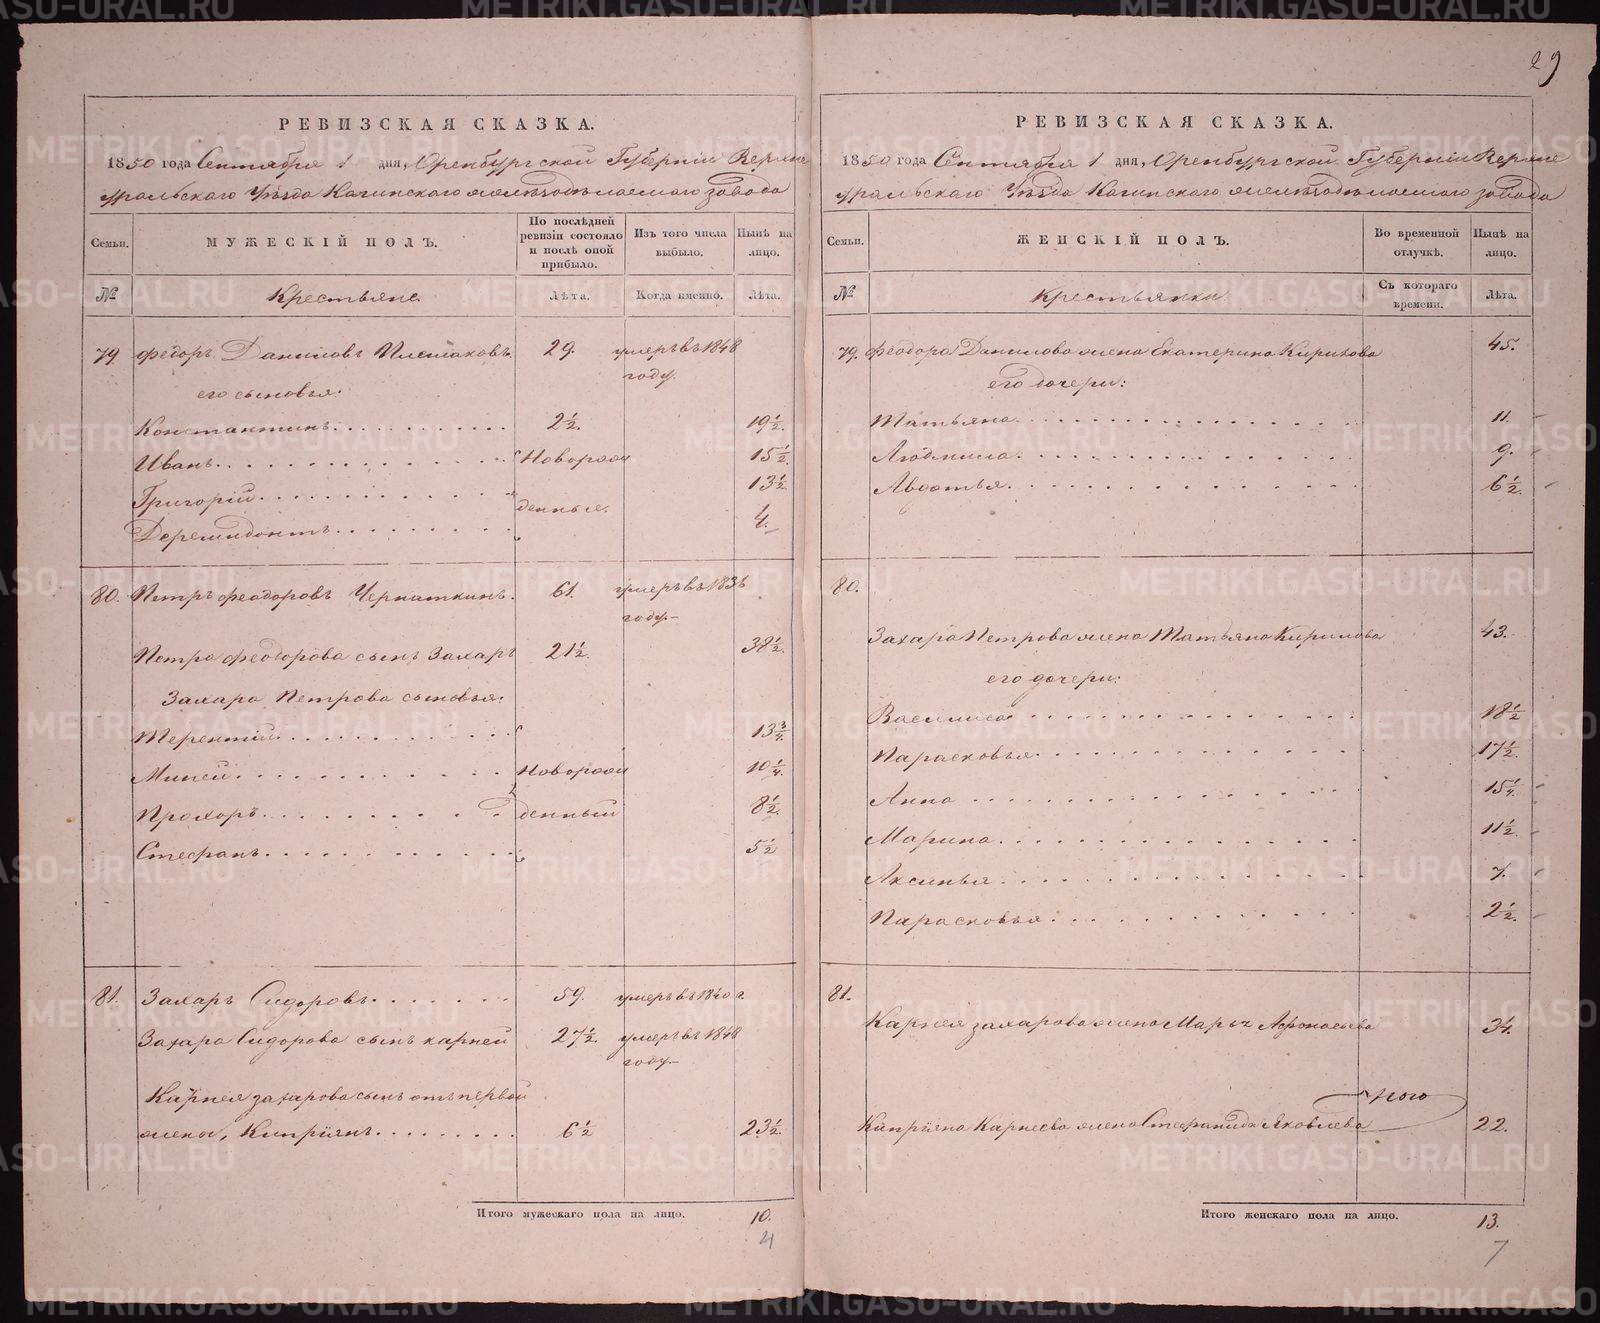 29
РЕВИЗСКАЯ СКАЗКА.
1850 года Сентября 1 дня, Оренбургской Губерніи Верхне
уральскаго Уѣзда Кагинскаго желѣзодѣлаемаго завода
Семьи.
МУЖЕСКІЙ ПОЛЪ.
По послѣдней
ревизіи состояло
и послѣ оной
прибыло.
Изъ того числа
выбыло.
Нынѣ на
лицо.
№
Крестьяне.
Лѣта.
Когда именно.
Лѣта.
79 Федоръ Даниловъ 29. умеръ въ 1848
году.
его сыновья:
Константинъ 2½. 19½.
Иванъ Новорож 15½.
Григорій 13½.
денные.
4.
80. Петръ Феодоровъ 61. умеръ въ 1836
году.
Петра Феодорова сынъ Захаръ 21½. 38½.
Захара Петрова сыновья:
Терентій 13¾.
Миней Новорож 10¼.
Прохоръ денный 8½.
Стефанъ 5½
81. Захаръ Сидоровъ 59. умеръ въ 1840 г.
Захара Сидорова сынъ Карней 27½. умеръ въ 1848
году.
Карнея Захарова сынъ отъ первой
жены, Кипріянъ 6½ 23½.
Итого мужескаго пола на лицо. 10.
4
РЕВИЗСКАЯ СКАЗКА.
1850 года Сентября 1 дня, Оренбургской Губерніи Верхне
уральскаго Уѣзда Кагинскаго желѣзодѣлаемаго завода
Семьи.
ЖЕНСКІЙ ПОЛЪ.
Во временной
отлучкѣ.
Нынѣ на
лицо.
№
Крестьянки
Съ котораго
времени.
Лѣта.
79. Феодора Данилова жена Екатерина 45.
его дочери:
Татьяна 11.
Людмила 9.
Авдотья 6½.
80.
Захара Петрова жена Татьяна Кирилова 43.
его дочери:
Василиса 18½
Парасковья 17½.
Анна 15¼.
Марина 11½.
Аксинья 7.
Парасковья 2½.
81.
Карнея Захарова жена Марья Афонасьева 34.
Кипріяна Карнеева жена Стефанида Яковлева 22.
Итого женскаго пола на лицо. 13.
7
METRIKI.GASO-URAL.RU